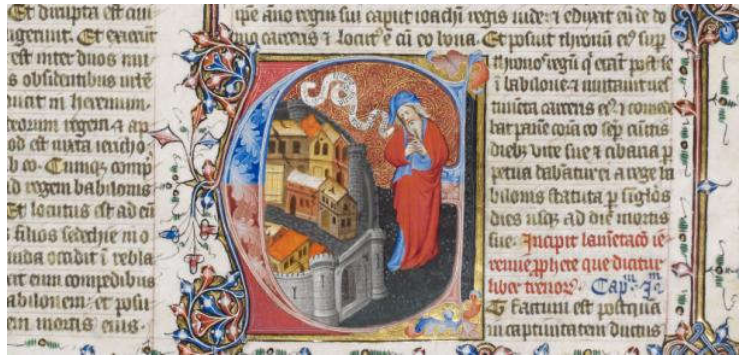 Et dirupta est ciui
ugerunt. Et exierūt
est inter duos mu
s obsidentibus urbē
in heremum
deorum regem ⁊ ap
od est iuxta iericho
b eo. Cumq; comp
d regem babilonis
Et locutus est ad eū
s filios sedechie in o
iuda occidit ī rebla
it eum compedibus
abilonem ⁊ posu
em mortis eius.
ip̄e anno regni sui caput ioachī regis iude ⁊ eduxit eū de do
mo carceris ⁊ locut᷒ ē cū eo bona. Et posuit thronū ei᷒ sup̄
thronos regū q̄ erāt post se
ī babilone ⁊ mutauit ues
timēta carceris ei᷒ ⁊ comede
bat panē corā eo semp̄ cūctis
dieb; uite sue ⁊ cibaria p̄
petua dabātur ei a rege ba
bilonis statuta p̄ sīglos
dies usq; ad diē mortis
sue. Incipit lamētacō ie
remie pp̄hete que dicitur
liber trenoꝝ. Capᵐ Iᵐ
factum est postquā
in captiuitatem ductus